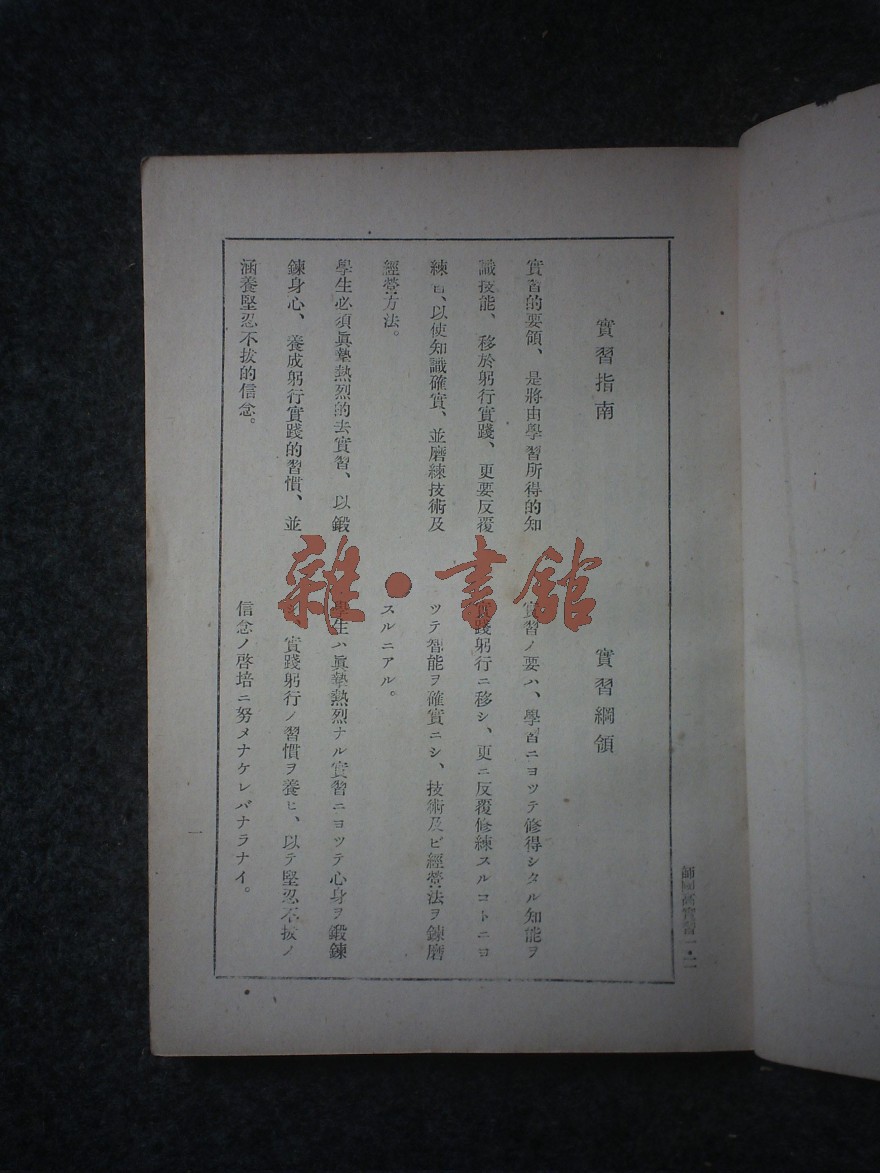 實習指南
實習的要領、是將由學習所得的知
識技能、移於躬行實踐、更要反覆
練習、以使知識確實、並磨練技術及
經營方法。
學生必須眞摯熱烈的去實習、以鍛
鍊身心、養成躬行實踐的習慣、並
涵養堅忍不拔的信念。
實習綱領
實習ノ要ハ、學習ニヨツテ修得シタル知能ヲ
實踐躬行ニ移シ、更ニ反覆修練スルコトニヨ
ツテ智能ヲ確實ニシ、技術及ビ經營法ヲ鍊磨
スルニアル。
學生ハ眞摯熱烈ナル實習ニヨツテ心身ヲ鍛鍊
實踐躬行ノ習慣ヲ養ヒ、以テ堅忍不拔ノ
信念ノ啓培ニ努メナケレバナラナイ。
一
師國高實習一・二
雜・書館